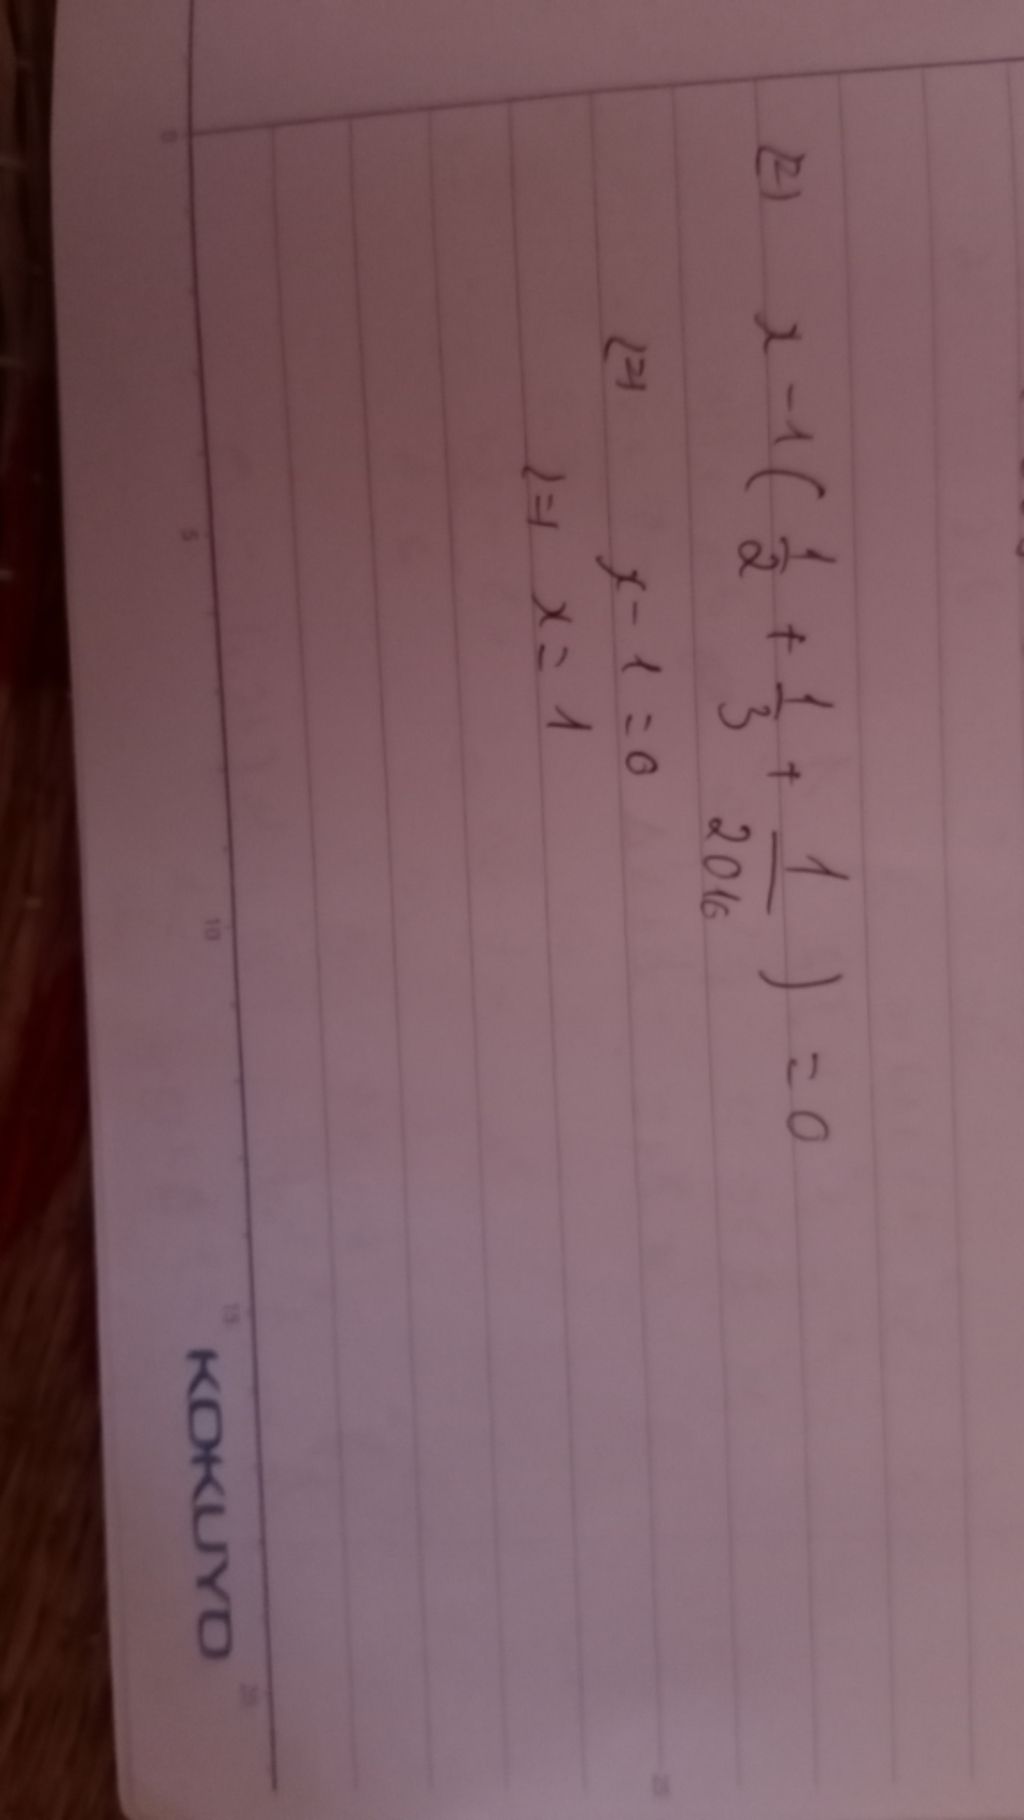 ⇔ x - 1 ( 1/2 + 1/3 + 1/2016 ) = 0
⇔ x - 1 = 0
⇔ x = 1
0 5 10 15 20
KOKUYO